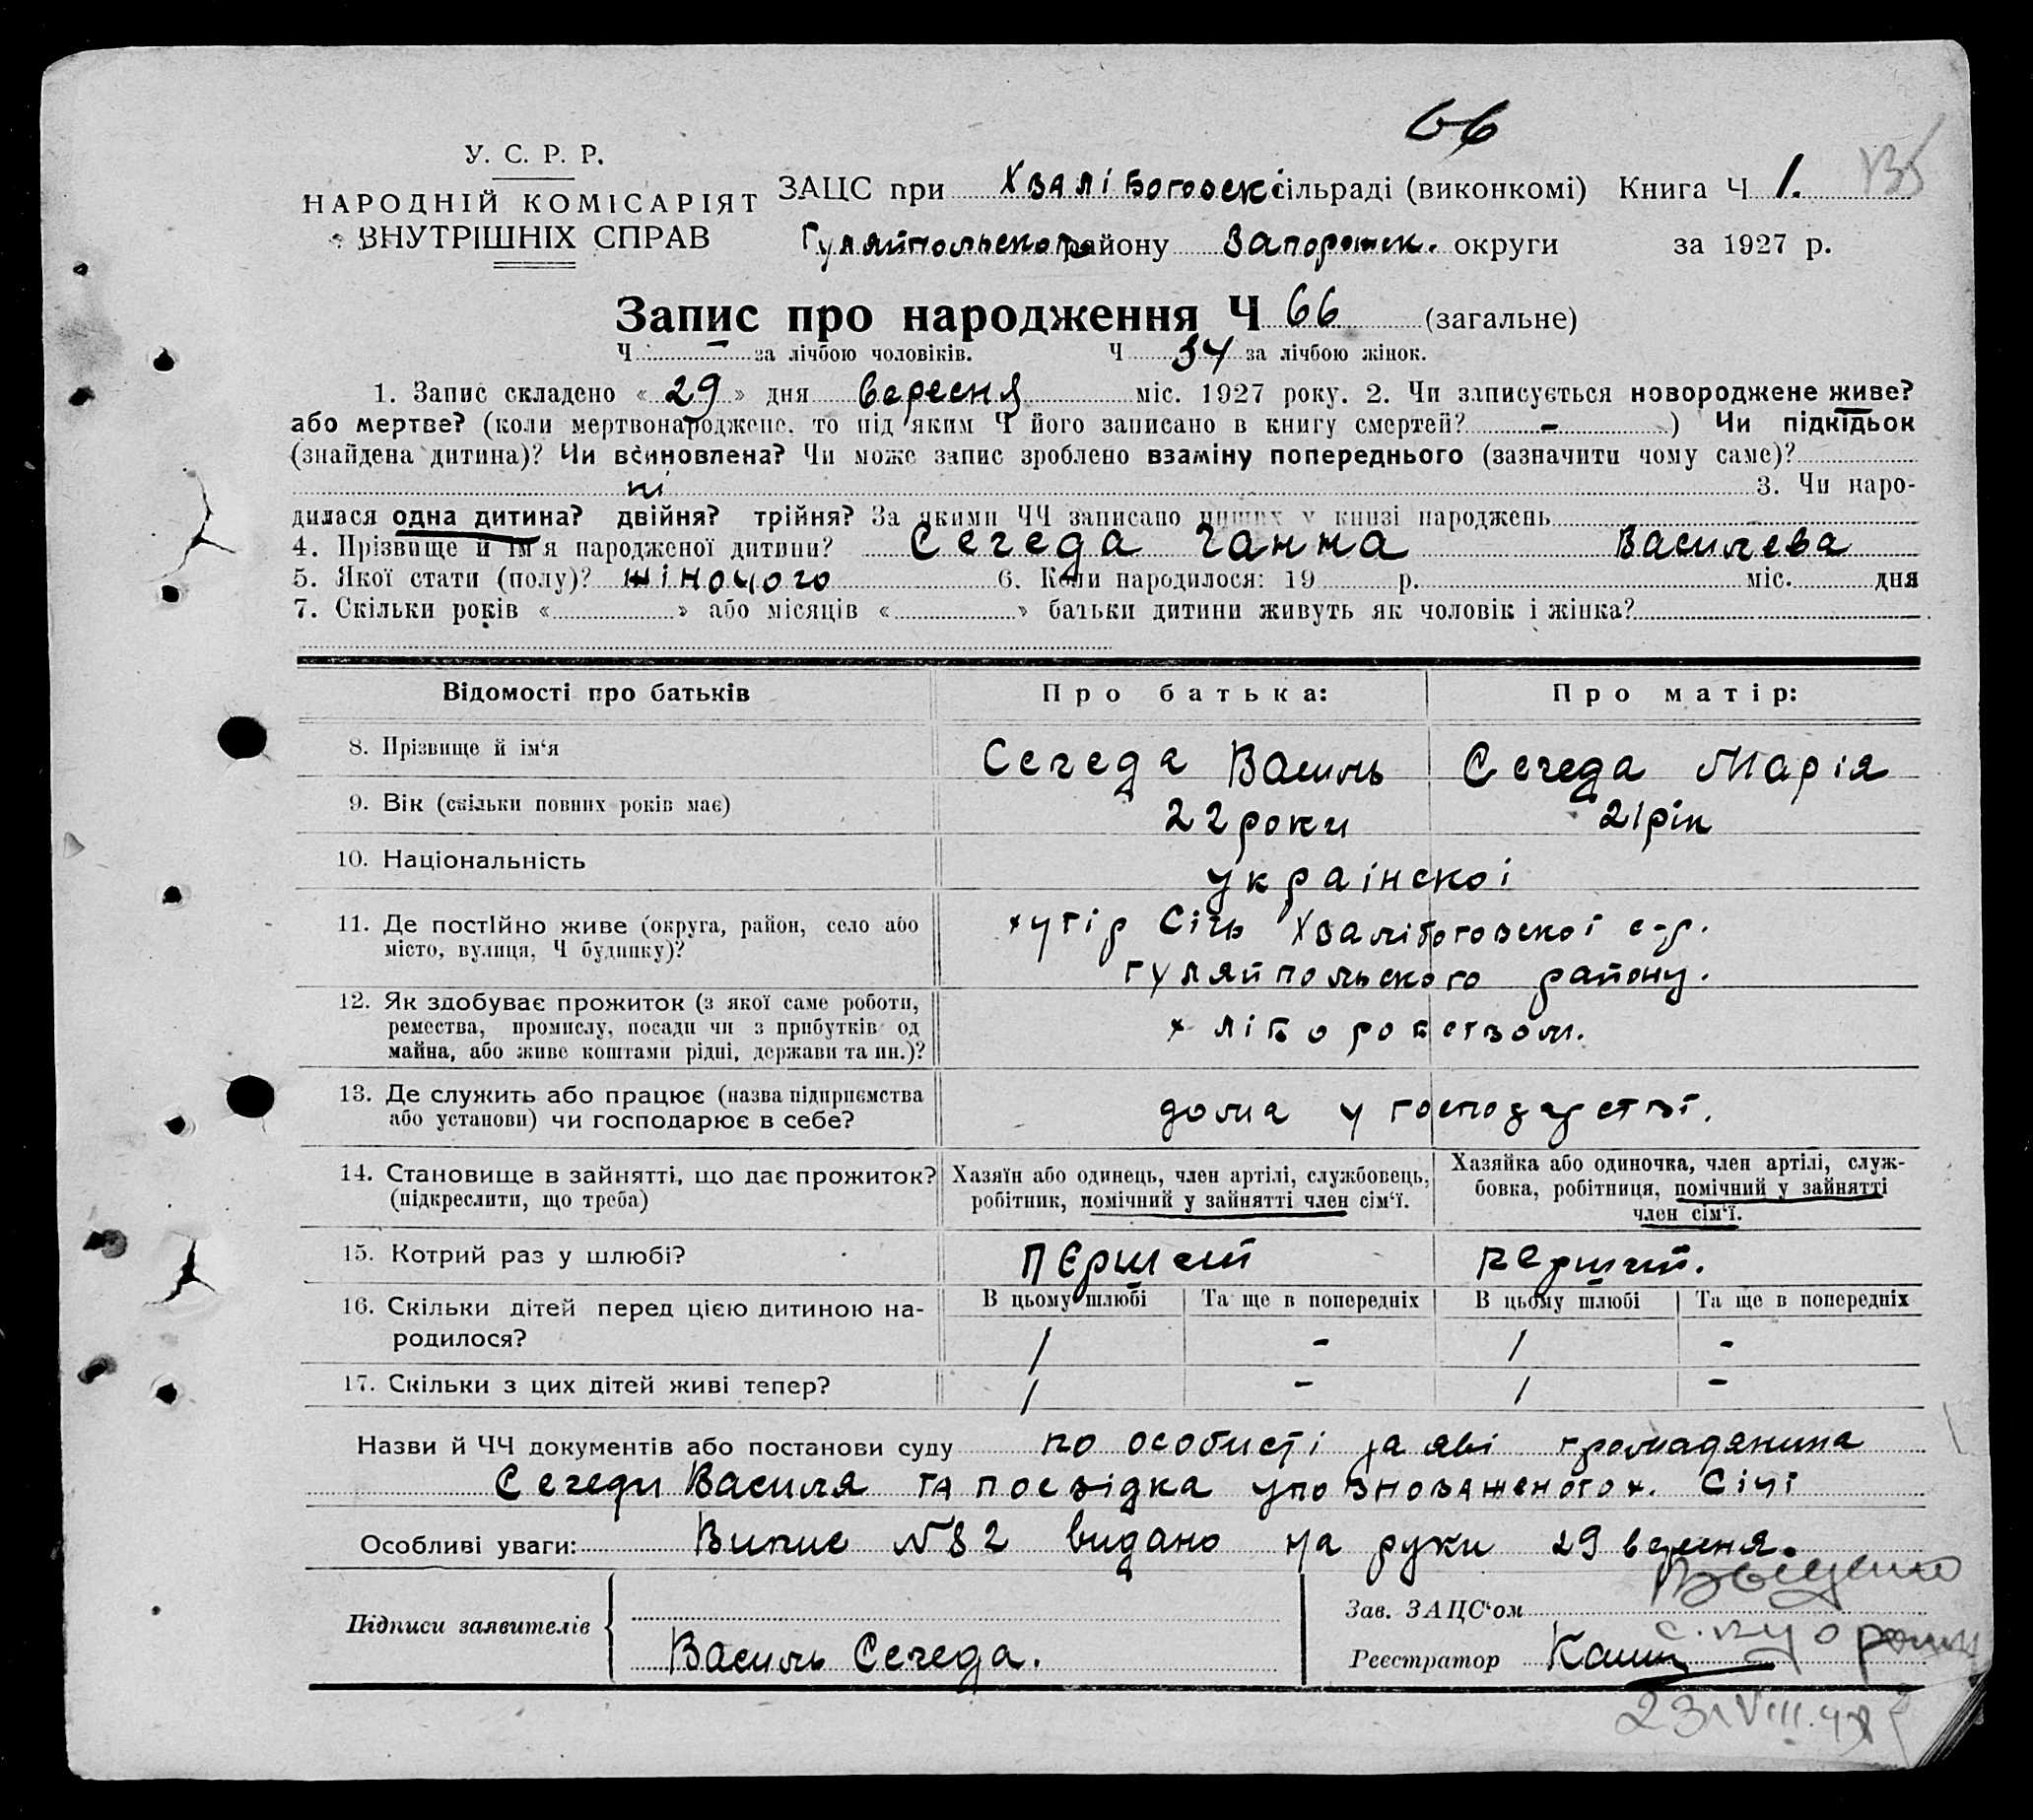 66
У. С. Р. Р.
НАРОДНІЙ КОМІСАРІЯТ
ВНУТРІШНІХ СПРАВ
ЗАЦС при Хвалібоговск сільраді (виконкомі) Книга Ч 1.
Гуляйпольского району Запорожск. округи за 1927 р.
Запис про народження Ч 66 (загальне)
Ч – за лічбою чоловіків. Ч 34 за лічбою жінок.
1. Запис складено « 29 » дня вересня міс. 1927 року. 2. Чи записується новороджене живе?
або мертве? (коли мертвонароджене, то під яким Ч його записано в книгу смертей? - ) Чи підкідьок
(знайдена дитина)? Чи всиновлена? Чи може запис зроблено взаміну попереднього (зазначити чому саме)?
ні 3. Чи наро-
дилася одна дитина? двійня? трійня? За якими ЧЧ записано инших у книзі народжень
4. Прізвище й ім'я народженої дитини? Сегеда Ганна Василева
5. Якої стати (полу)? жіночого 6. Коли народилося: 19 р. міс. дня
7. Скільки років « » або місяців « » батьки дитини живуть як чоловік і жінка?
Відомості про батьків Про батька: Про матір:
8. Прізвище й ім'я Сегеда Василь Сегеда Марія
9. Вік (скільки повних років має) 22 роки 21 рік
10. Національність українскоі
11. Де постійно живе (округа, район, село або
місто, вулиця, Ч будинку)?
хутір Січь Хвалібоговскоі с-р.
гуляйпольского району.
12. Як здобуває прожиток (з якої саме роботи,
ремества, промислу, посади чи з прибутків од
майна, або живе коштами рідні, держави та ин.)?
хліборобством.
13. Де служить або працює (назва підприємства
або установи) чи господарює в себе?
дома у господарстві.
14. Становище в зайнятті, що дає прожиток?
(підкреслити, що треба)
Хазяїн або одинець, член артілі, службовець,
робітник, помічний у зайнятті член сім'ї.
Хазяйка або одиночка, член артілі, служ-
бовка, робітниця, помічний у зайнятті
член сім'ї.
15. Котрий раз у шлюбі? перший перший.
16. Скільки дітей перед цією дитиною на-
родилося?
В цьому шлюбі Та ще в попередніх В цьому шлюбі Та ще в попередніх
1 - 1 -
17. Скільки з цих дітей живі тепер? 1 - 1 -
Назви й ЧЧ документів або постанови суду по особисті заяві громадянина
Сегеди Василя та посвідка уповноваженого х. Січі
Особливі уваги: Випис №82 видано на руки 29 вересня.
Підписи заявителів
Василь Сегеда.
Зав. ЗАЦС'ом
Реєстратор
23/VIII.